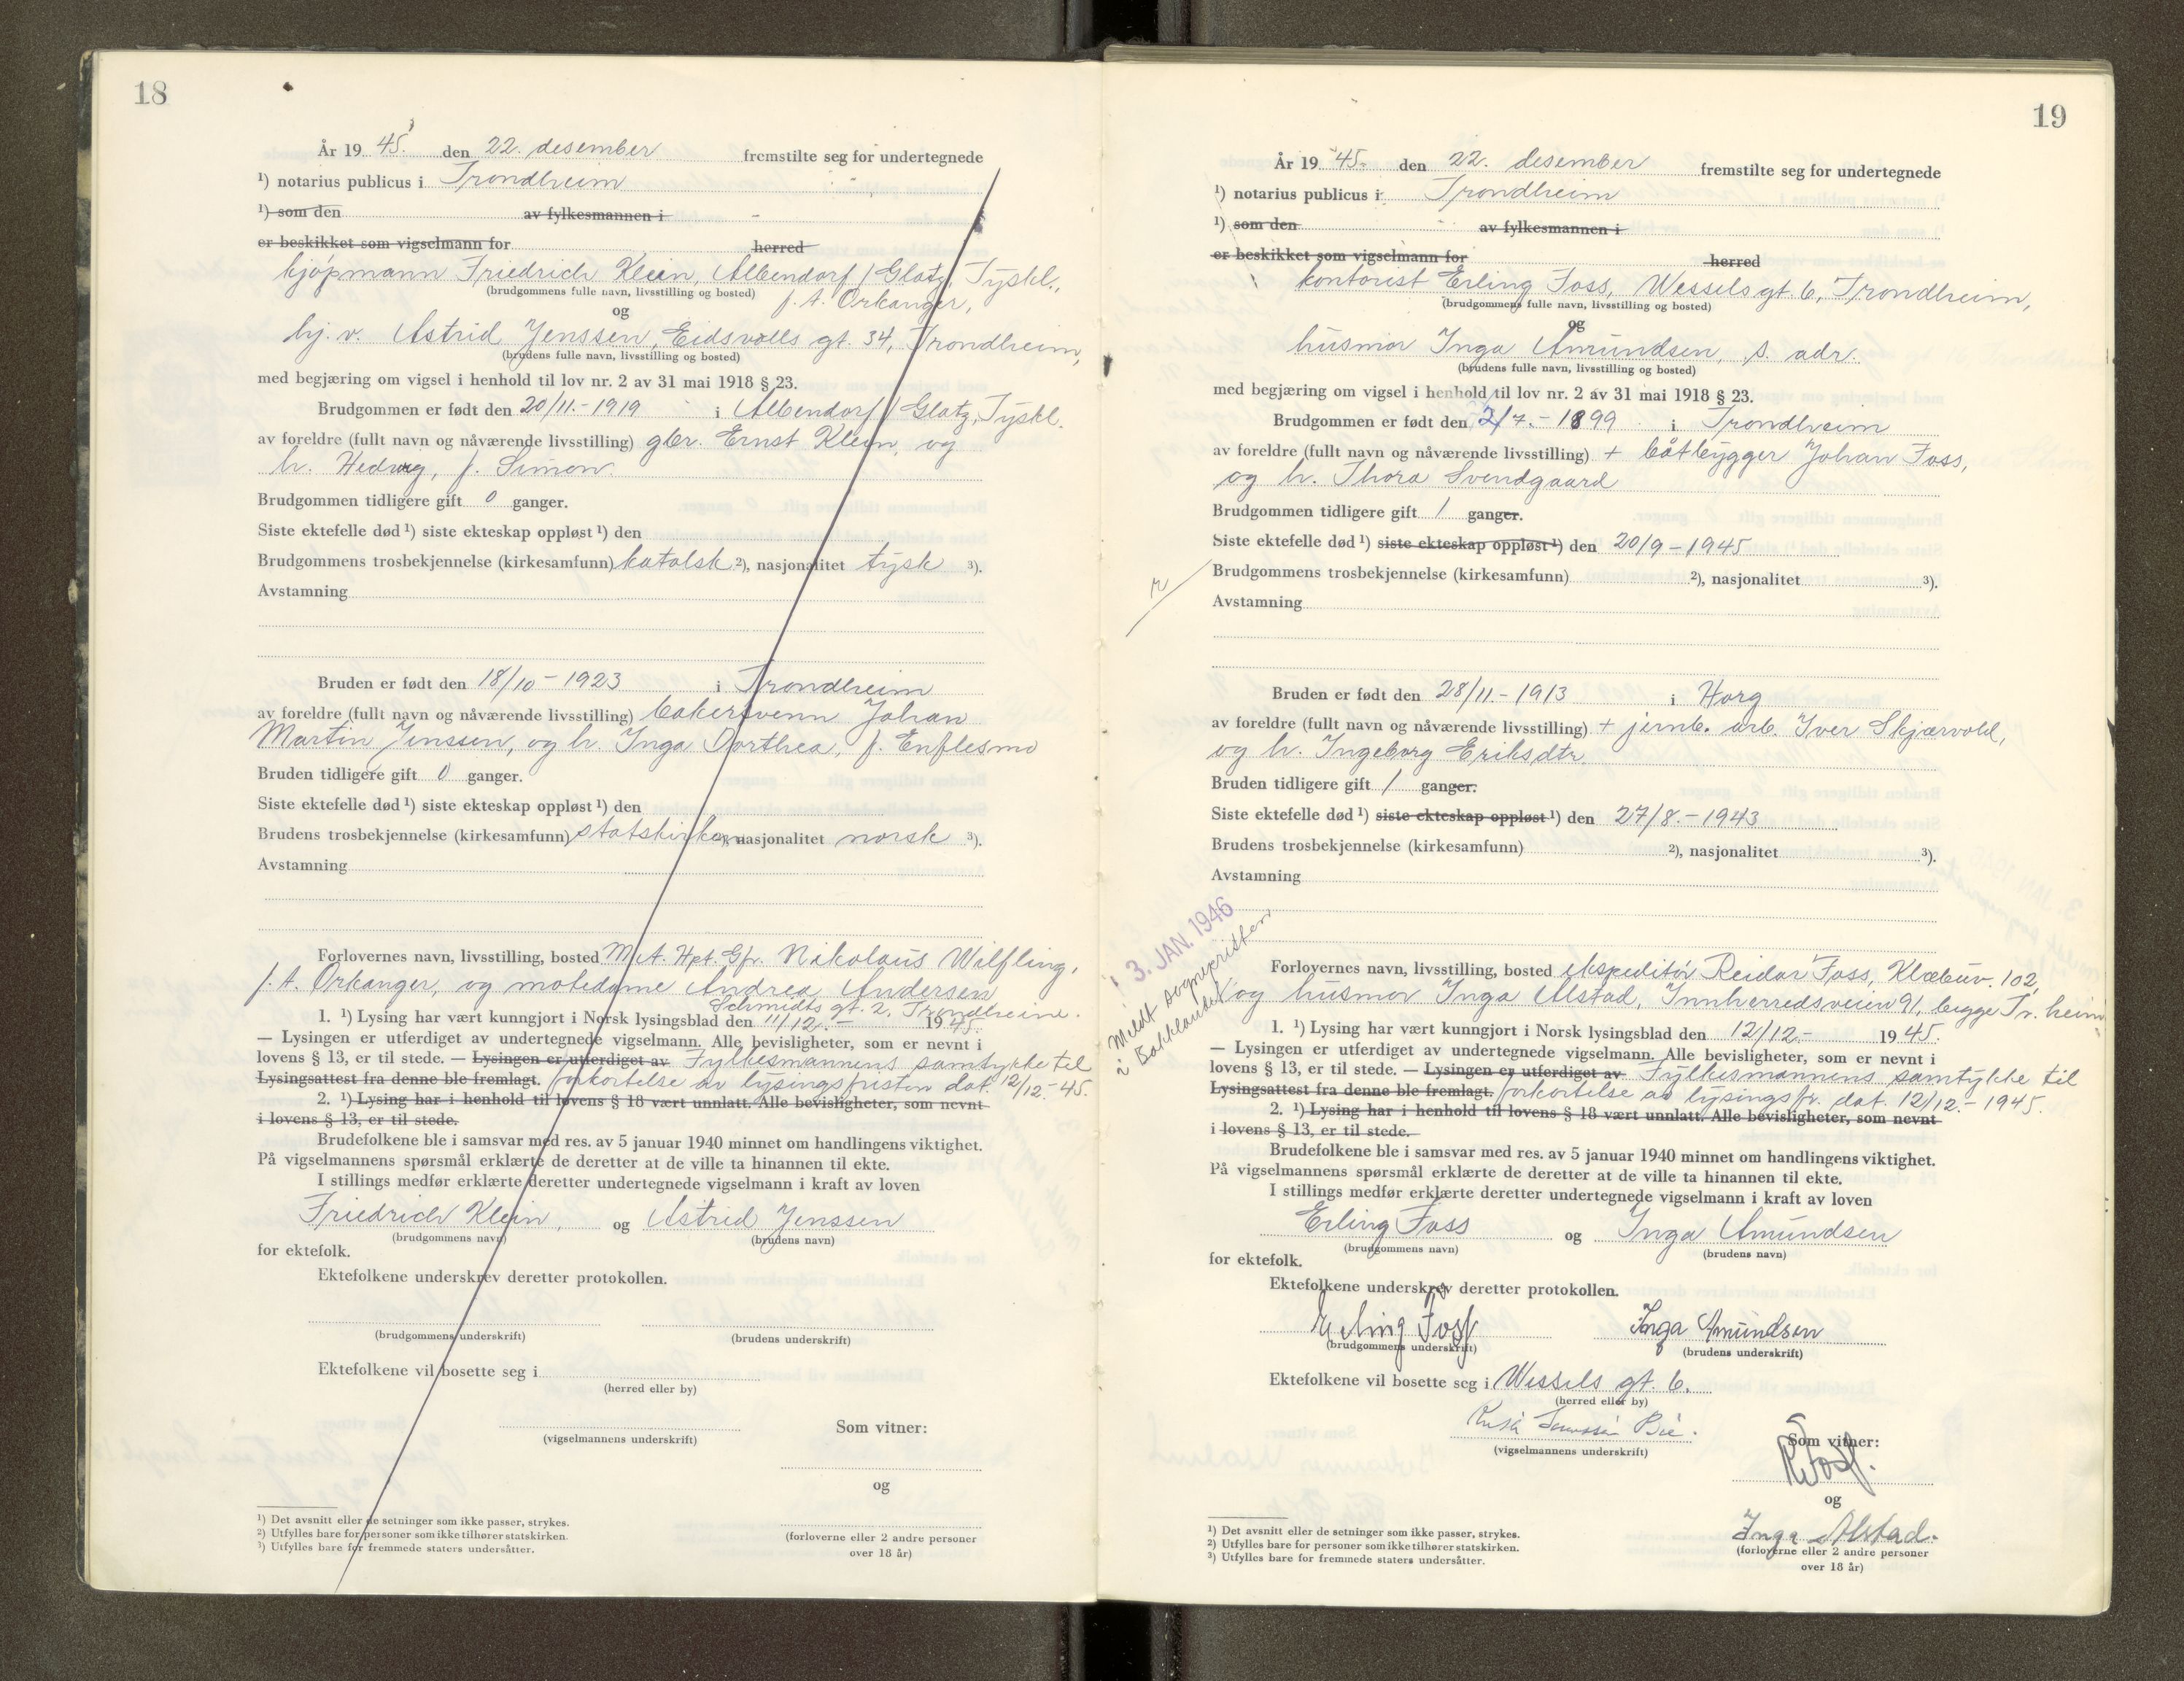 18
År 19 45. den 22. desember fremstilte seg for undertegnede
¹) notarius publicus i Trondheim
¹) som den av fylkesmannen i
er beskikket som vigselmann for herred
kjøpmann Friedrich Klein, Albendorf / Glatz, Tyskl.,
(brudgommens fulle navn, livsstilling og bosted) f. A. Orkanger,
og
hj. v. Astrid Jenssen, Eidsvolls gt. 34, Trondheim,
(brudens fulle navn, livsstilling og bosted)
med begjæring om vigsel i henhold til lov nr. 2 av 31 mai 1918 § 23.
Brudgommen er født den 20/11.-1919 i Albendorf / Glatz, Tyskl.
av foreldre (fullt navn og nåværende livsstilling) gbr. Ernst Klein, og
h. Hedwig, f. Simon.
Brudgommen tidligere gift 0 ganger.
Siste ektefelle død ¹) siste ekteskap oppløst ¹) den
Brudgommens trosbekjennelse (kirkesamfunn) katolsk ²), nasjonalitet tysk ³).
Avstamning
Bruden er født den 18/10-1923 i Trondheim
av foreldre (fullt navn og nåværende livsstilling) bakersvenn Johan
Martin Jenssen, og h. Inga Dorthea, f. Enflesmo
Bruden tidligere gift 0 ganger.
Siste ektefelle død ¹) siste ekteskap oppløst ¹) den
Brudens trosbekjennelse (kirkesamfunn) statskirken nasjonalitet norsk ³).
Avstamning
Forlovernes navn, livsstilling, bosted Mit. Hpt. Gfr. Nikolaus Wilfling,
f. A. Orkanger, og motedame Andrea Andersen
Schmidts gt. 2, Trondheim.
1. ¹) Lysing har vært kunngjort i Norsk lysingsblad den 11/12.- 1945.
— Lysingen er utferdiget av undertegnede vigselmann. Alle bevisligheter, som er nevnt i
lovens § 13, er til stede. — Lysingen er utferdiget av Fylkesmannens samtykke til
Lysingsattest fra denne ble fremlagt. forkortelse av lysingsfristen dat. 12/12.-45.
2. ¹) Lysing har i henhold til lovens § 18 vært unnlatt. Alle bevisligheter, som nevnt
i lovens § 13, er til stede.
Brudefolkene ble i samsvar med res. av 5 januar 1940 minnet om handlingens viktighet.
På vigselmannens spørsmål erklærte de deretter at de ville ta hinannen til ekte.
I stillings medfør erklærte deretter undertegnede vigselmann i kraft av loven
Friedrich Klein, og Astrid Jenssen
(brudgommens navn) (brudens navn)
for ektefolk.
Ektefolkene underskrev deretter protokollen.
(brudgommens underskrift) (brudens underskrift)
Ektefolkene vil bosette seg i
(herred eller by)
Som vitner:
(vigselmannens underskrift)
og
¹) Det avsnitt eller de setninger som ikke passer, strykes.
²) Utfylles bare for personer som ikke tilhører statskirken.
³) Utfylles bare for fremmede staters undersåtter.
(forloverne eller 2 andre personer
over 18 år)
19
År 19 45. den 22. desember fremstilte seg for undertegnede
¹) notarius publicus i Trondheim
¹) som den av fylkesmannen i
er beskikket som vigselmann for herred
kontorist Erling Foss, Wessels gt. 6, Trondheim,
(brudgommens fulle navn, livsstilling og bosted)
og
husmor Inga Amundsen, s. adr.
(brudens fulle navn, livsstilling og bosted)
med begjæring om vigsel i henhold til lov nr. 2 av 31 mai 1918 § 23.
Brudgommen er født den 2/7.-1899 i Trondheim
av foreldre (fullt navn og nåværende livsstilling) + båtbygger Johan Foss,
og h. Thora Svendgaard
Brudgommen tidligere gift 1 ganger.
Siste ektefelle død ¹) siste ekteskap oppløst ¹) den 20/9-1945
Brudgommens trosbekjennelse (kirkesamfunn) ²), nasjonalitet ³).
Avstamning
Bruden er født den 28/11.-1913 i Horg
av foreldre (fullt navn og nåværende livsstilling) + jernb. arb. Iver Skjærvold,
og h. Ingeborg Eriksdtr.
Bruden tidligere gift 1 ganger.
Siste ektefelle død ¹) siste ekteskap oppløst ¹) den 27/8.-1943
Brudens trosbekjennelse (kirkesamfunn) ²), nasjonalitet ³).
Avstamning
3. JAN. 1946
Meldt sogneprsten
i Bakklandet
Forlovernes navn, livsstilling, bosted ekspeditør Reidar Foss, Klæbuv. 102,
og husmor Inga Alstad, Innherredsveien 91, begge Tr.heim
1. ¹) Lysing har vært kunngjort i Norsk lysingsblad den 12/12.- 1945.
— Lysingen er utferdiget av undertegnede vigselmann. Alle bevisligheter, som er nevnt i
lovens § 13, er til stede. — Lysingen er utferdiget av Fylkesmannens samtykke til
Lysingsattest fra denne ble fremlagt. forkortelse av lysingsfr. dat. 12/12.-1945.
2. ¹) Lysing har i henhold til lovens § 18 vært unnlatt. Alle bevisligheter, som nevnt
i lovens § 13, er til stede.
Brudefolkene ble i samsvar med res. av 5 januar 1940 minnet om handlingens viktighet.
På vigselmannens spørsmål erklærte de deretter at de ville ta hinannen til ekte.
I stillings medfør erklærte deretter undertegnede vigselmann i kraft av loven
Erling Foss og Inga Amundsen
(brudgommens navn) (brudens navn)
for ektefolk.
Ektefolkene underskrev deretter protokollen.
Erling Foss Inga Amundsen
(brudgommens underskrift) (brudens underskrift)
Ektefolkene vil bosette seg i Wessels gt. 6.
(herred eller by)
(vigselmannens underskrift)
Som vitner:
R. Foss.
og
Inga Alstad.
¹) Det avsnitt eller de setninger som ikke passer, strykes.
²) Utfylles bare for personer som ikke tilhører statskirken.
³) Utfylles bare for fremmede staters undersåtter.
(forloverne eller 2 andre personer
over 18 år)